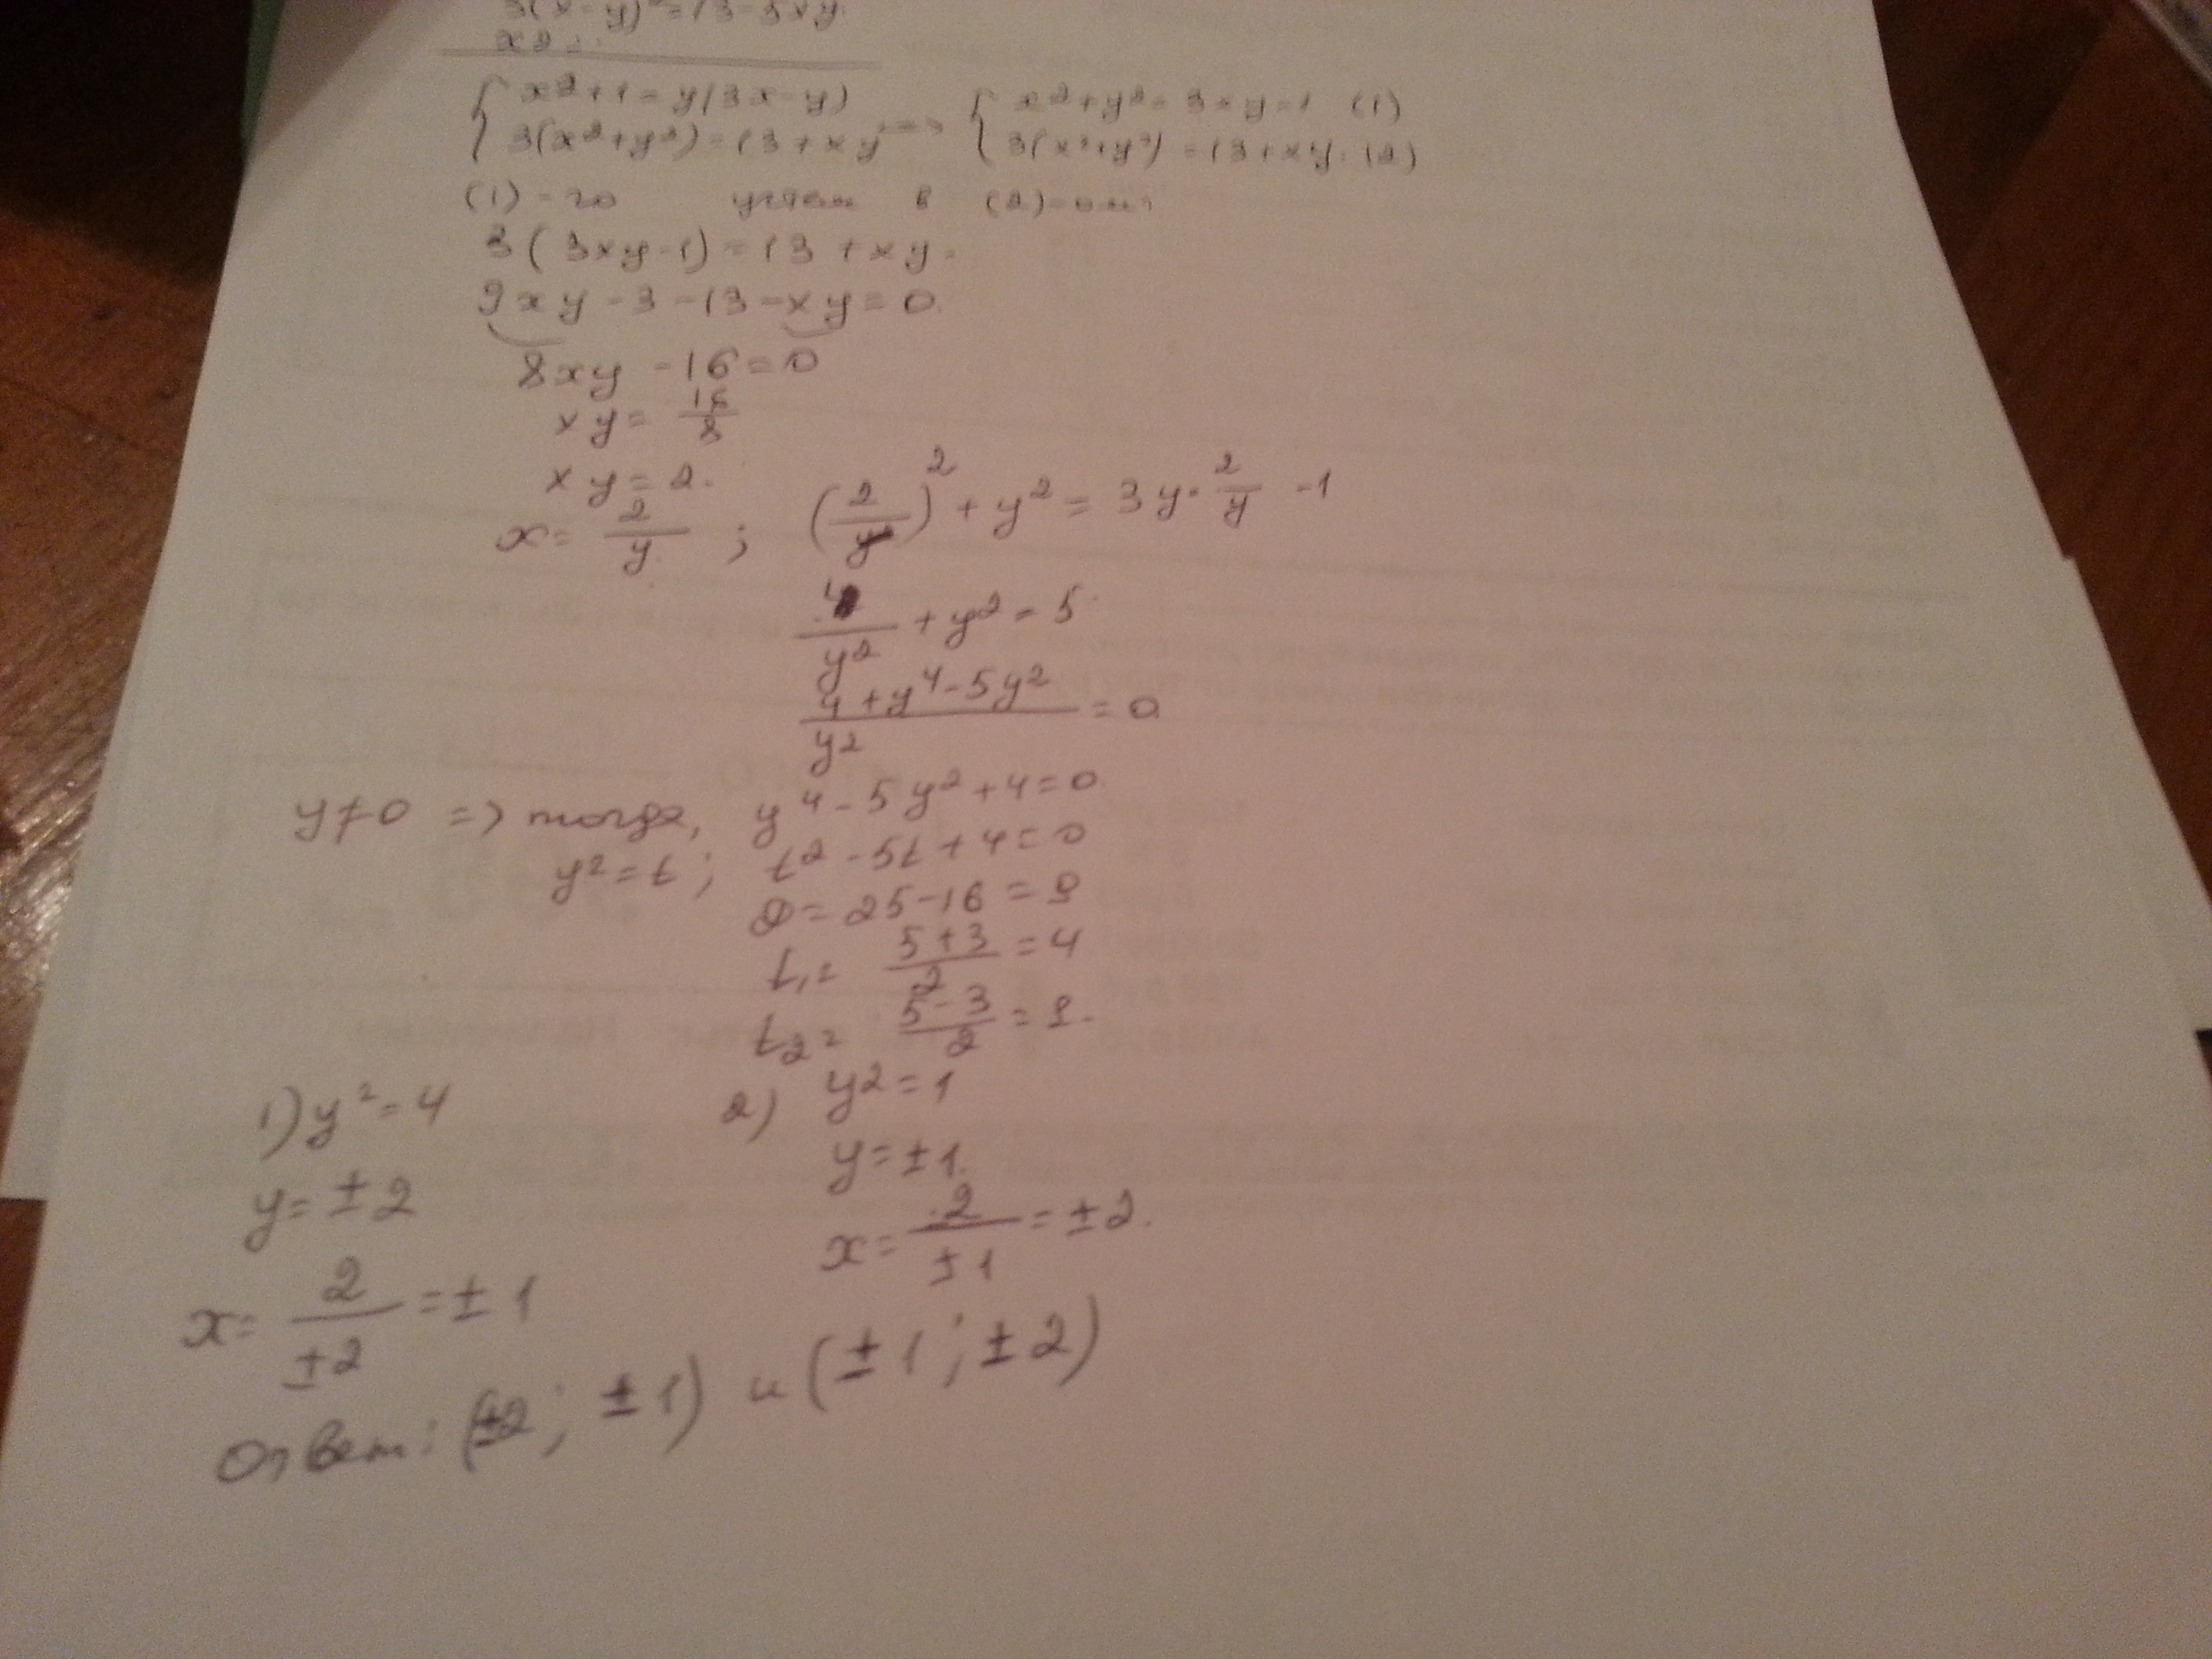 3(x-y)² = 13-5xy.
{ x²+1 = y(3x-y)
3(x²+y²) = 13+xy
=> { x²+y² = 3xy-1 (1)
3(x²+y²) = 13+xy. (2)
(1)-го учтем в (2)-ом:
3(3xy-1) = 13+xy.
9xy-3-13-xy=0.
8xy-16=0
xy = 16/8
xy = 2.
x = 2/y ; (2/y)² + y² = 3y · 2/y - 1
4/y² + y² = 5
(4+y⁴-5y²)/y² = 0
y≠0 => тогда, y⁴-5y²+4=0
y²=t; t²-5t+4=0
D=25-16=9
t₁ = (5+3)/2 = 4
t₂ = (5-3)/2 = 1.
1) y²=4
y=±2
x = 2/±2 = ±1
2) y²=1
y=±1.
x = 2/±1 = ±2.
Ответ: (±2; ±1) и (±1; ±2)